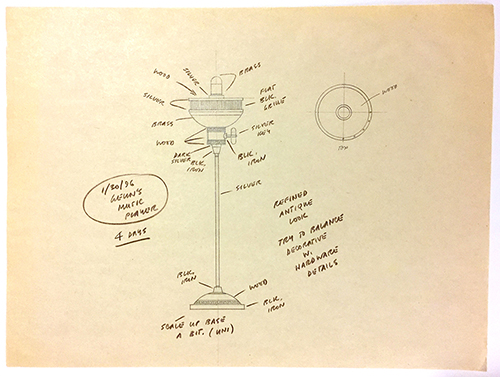 BRASS
SILVER
WOOD
FLAT
BLK.
GRILLE
SILVER
BRASS
WOOD
SILVER
KEY
WOOD
DARK
SILVER
BLK.
IRON
BLK.
IRON
SILVER
1/30/96
MUSIC
PLAYER
4 DAYS
REFINED
ANTIQUE
LOOK
TRY TO BALANCE
DECORATIVE
W.
HARDWARE
DETAILS
BLK.
IRON
WOOD
BLK.
IRON
SCALE UP BASE
A BIT. (UNI)
WOOD
TOP